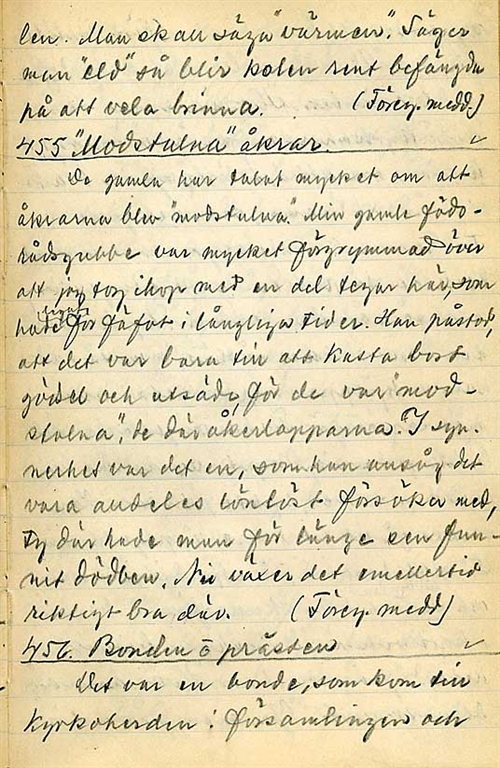 len. Man skall säga "värmen". Säger
man "eld" så blir kolen rent befängda
på att vela brinna. (Föreg. medd.)
455 "Modstulna" åkrar.
De gamla har talat mycket om att
åkrarna blev "modstulna." Min gamle födo-
rådsgubbe var mycket förgrymmad över
att jag tog ihop med en del tegar här, som
legat
hade för fäfot i långliga tider. Han påstod,
att det var bara till att kasta bort
gödsel och utsäde, för de var "mod-
stulna", de där åkerlapparna. I syn-
nerhet var det en, som han ansåg det
vara alldeles lönlöst försöka med,
ty där hade man för länge sen fun-
nit dödben. Nu växer det emellertid
riktigt bra där. (Föreg. medd.)
456. Bonden o prästen
Det var en bonde, som kom till
kyrkoherden i församlingen och